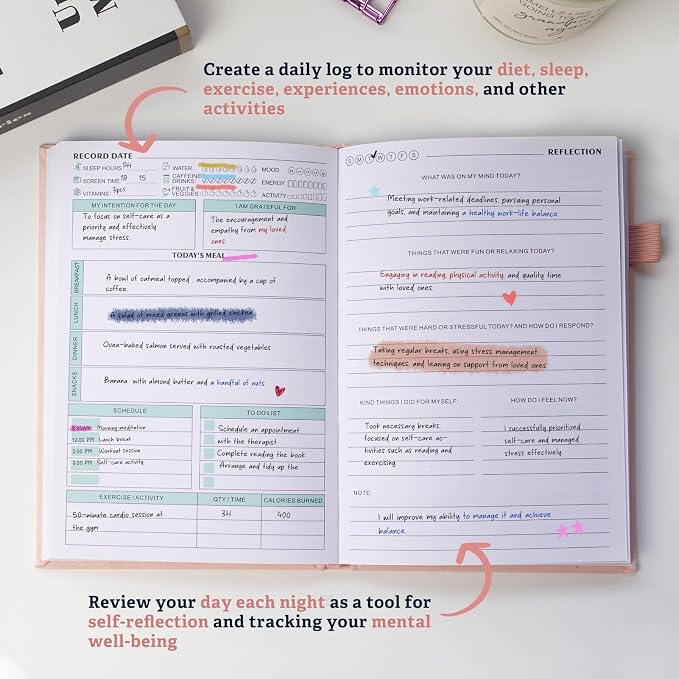 Create a daily log to monitor your diet, sleep,
exercise, experiences, emotions, and other
activities
RECORD DATE
SLEEP HOURS: 9H
WATER:
MOOD
SCREEN TIME:
15
CAFFEINE
DRINKS:
ENERGY
VITAMINS: 3pcs
FRUIT &
VEGGIES:
ACTIVITY
MY INTENTION FOR THE DAY
To focus on self-care as a
priority and effectively
manage stress.
I AM GRATEFUL FOR
The encouragement and
empathy from my loved
ones.
TODAY'S MEAL
BREAKFAST
A bowl of oatmeal topped , accompanied by a cup of
coffee.
LUNCH
A salad of mixed greens with grilled chicken
DINNER
Oven-baked salmon served with roasted vegetables.
SNACKS
Banana with almond butter and a handful of nuts.
SCHEDULE
Morning meditation
12:00 PM Lunch break
2:00 PM Workout session
8:00 PM Self-care activity
TO DO LIST
Schedule an appointment
with the therapist
Complete reading the book
Arrange and tidy up the
EXERCISE / ACTIVITY
QTY / TIME
CALORIES BURNED
50-minute cardio session at
the gym
3H
400
S M T W T F S
REFLECTION
WHAT WAS ON MY MIND TODAY?
Meeting work-related deadlines, pursuing personal
goals, and maintaining a healthy work-life balance.
THINGS THAT WERE FUN OR RELAXING TODAY?
Engaging in reading, physical activity, and quality time
with loved ones.
THINGS THAT WERE HARD OR STRESSFUL TODAY? AND HOW DO I RESPOND?
Taking regular breaks, using stress management
techniques, and leaning on support from loved ones.
KIND THINGS I DID FOR MYSELF:
Took necessary breaks,
focused on self-care ac-
tivities such as reading and
exercising.
HOW DO I FEEL NOW?
I successfully prioritized
self-care and managed
stress effectively.
NOTE:
I will improve my ability to manage it and achieve
balance.
Review your day each night as a tool for
self-reflection and tracking your mental
well-being